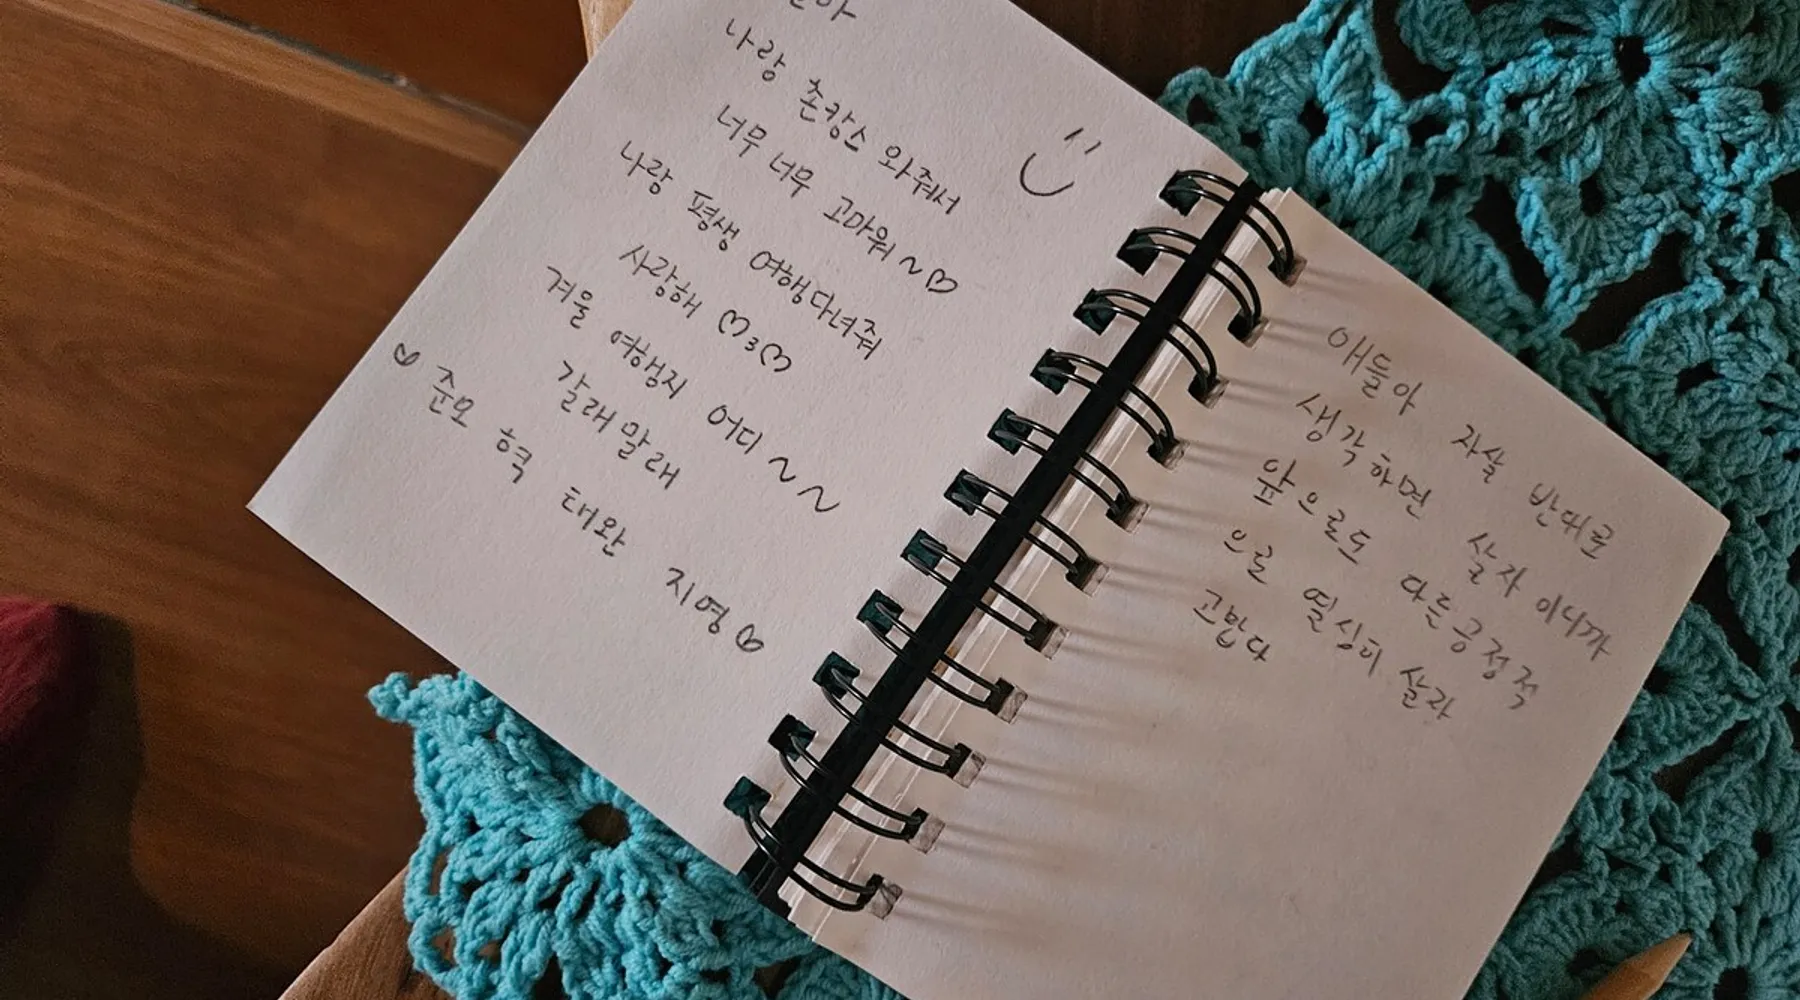 나랑 촌캉스 와줘서
너무 너무 고마워~♡
나랑 평생 여행다녀줘
사랑해 ♡3♡
겨울 여행지 어디~~
갈래말래
♡ 준모 혁 태완 지영♡
애들아 자살 반대로
생각하면 살자 이니까
앞으로도 다들긍정적
으로 열심히 살자
고맙다